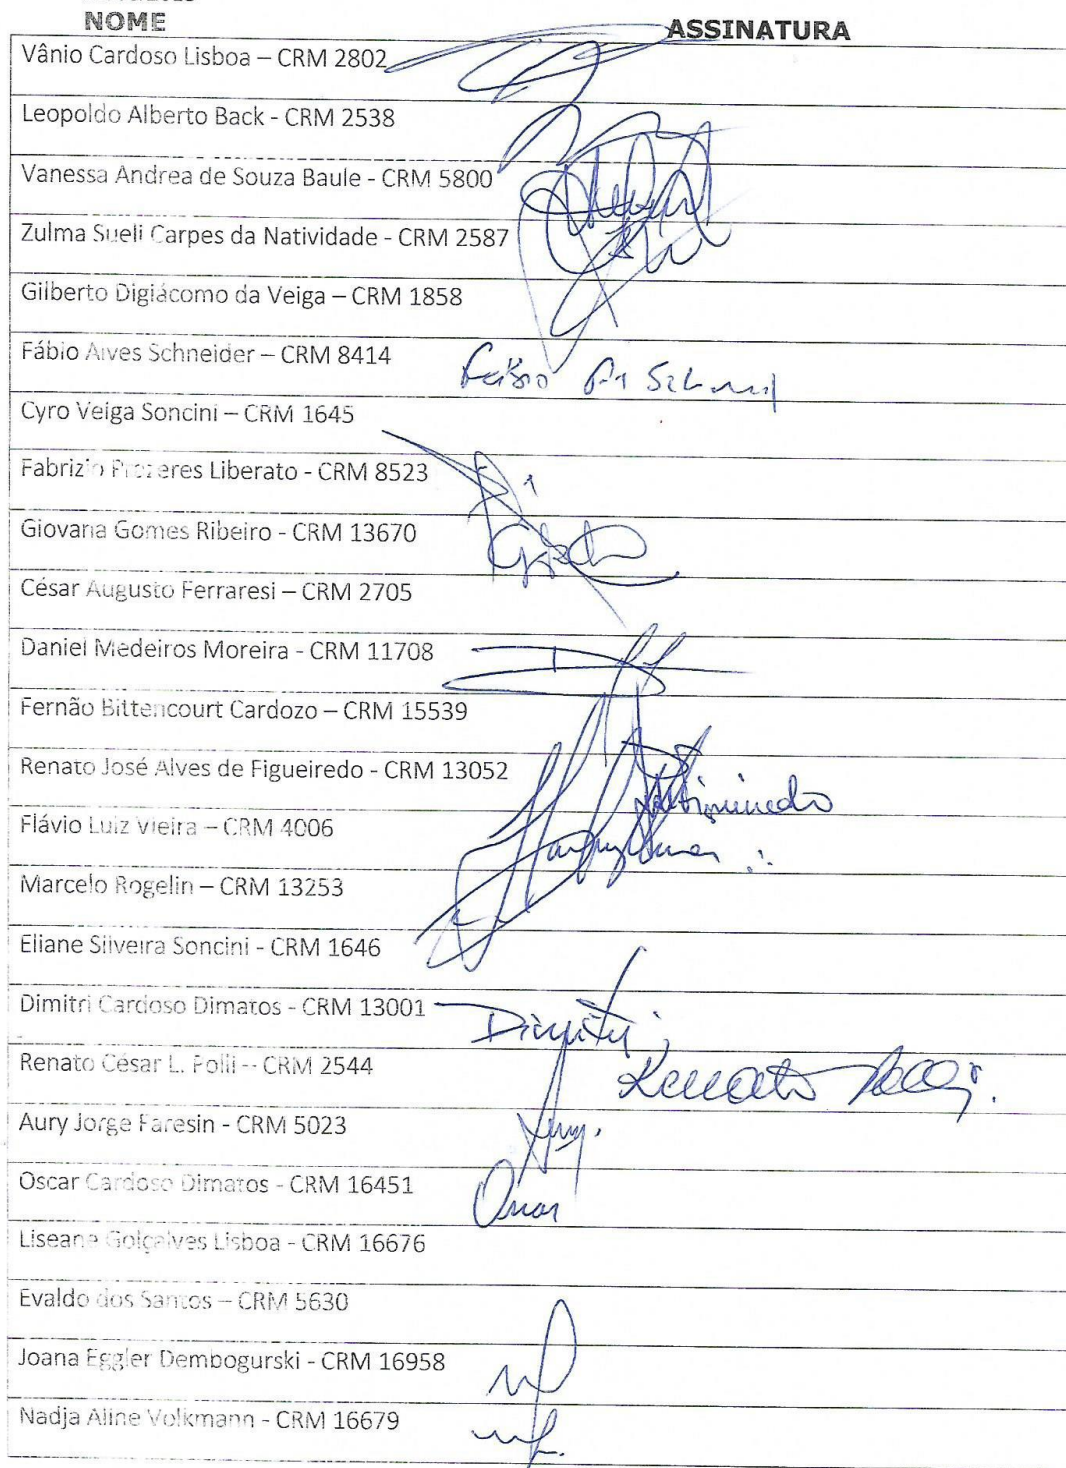 NOME ASSINATURA
Vânio Cardoso Lisboa – CRM 2802
Leopoldo Alberto Back - CRM 2538
Vanessa Andrea de Souza Baule - CRM 5800
Zulma Sueli Carpes da Natividade - CRM 2587
Gilberto Digiácomo da Veiga – CRM 1858
Fábio Alves Schneider – CRM 8414
Cyro Veiga Soncini – CRM 1645
Fabrizio Prazeres Liberato - CRM 8523
Giovana Gomes Ribeiro - CRM 13670
César Augusto Ferraresi – CRM 2705
Daniel Medeiros Moreira - CRM 11708
Fernão Bittencourt Cardozo – CRM 15539
Renato José Alves de Figueiredo - CRM 13052
Flávio Luiz Vieira – CRM 4006
Marcelo Rogelin – CRM 13253
Eliane Silveira Soncini - CRM 1646
Dimitri Cardoso Dimatos - CRM 13001 Dimitri
Renato César L. Polli -- CRM 2544 Renato Polli.
Aury Jorge Faresin - CRM 5023 Aury.
Oscar Cardoso Dimatos - CRM 16451 Oscar
Liseane Golçalves Lisboa - CRM 16676
Evaldo dos Santos – CRM 5630
Joana Eggler Dembogurski - CRM 16958
Nadja Aline Volkmann - CRM 16679